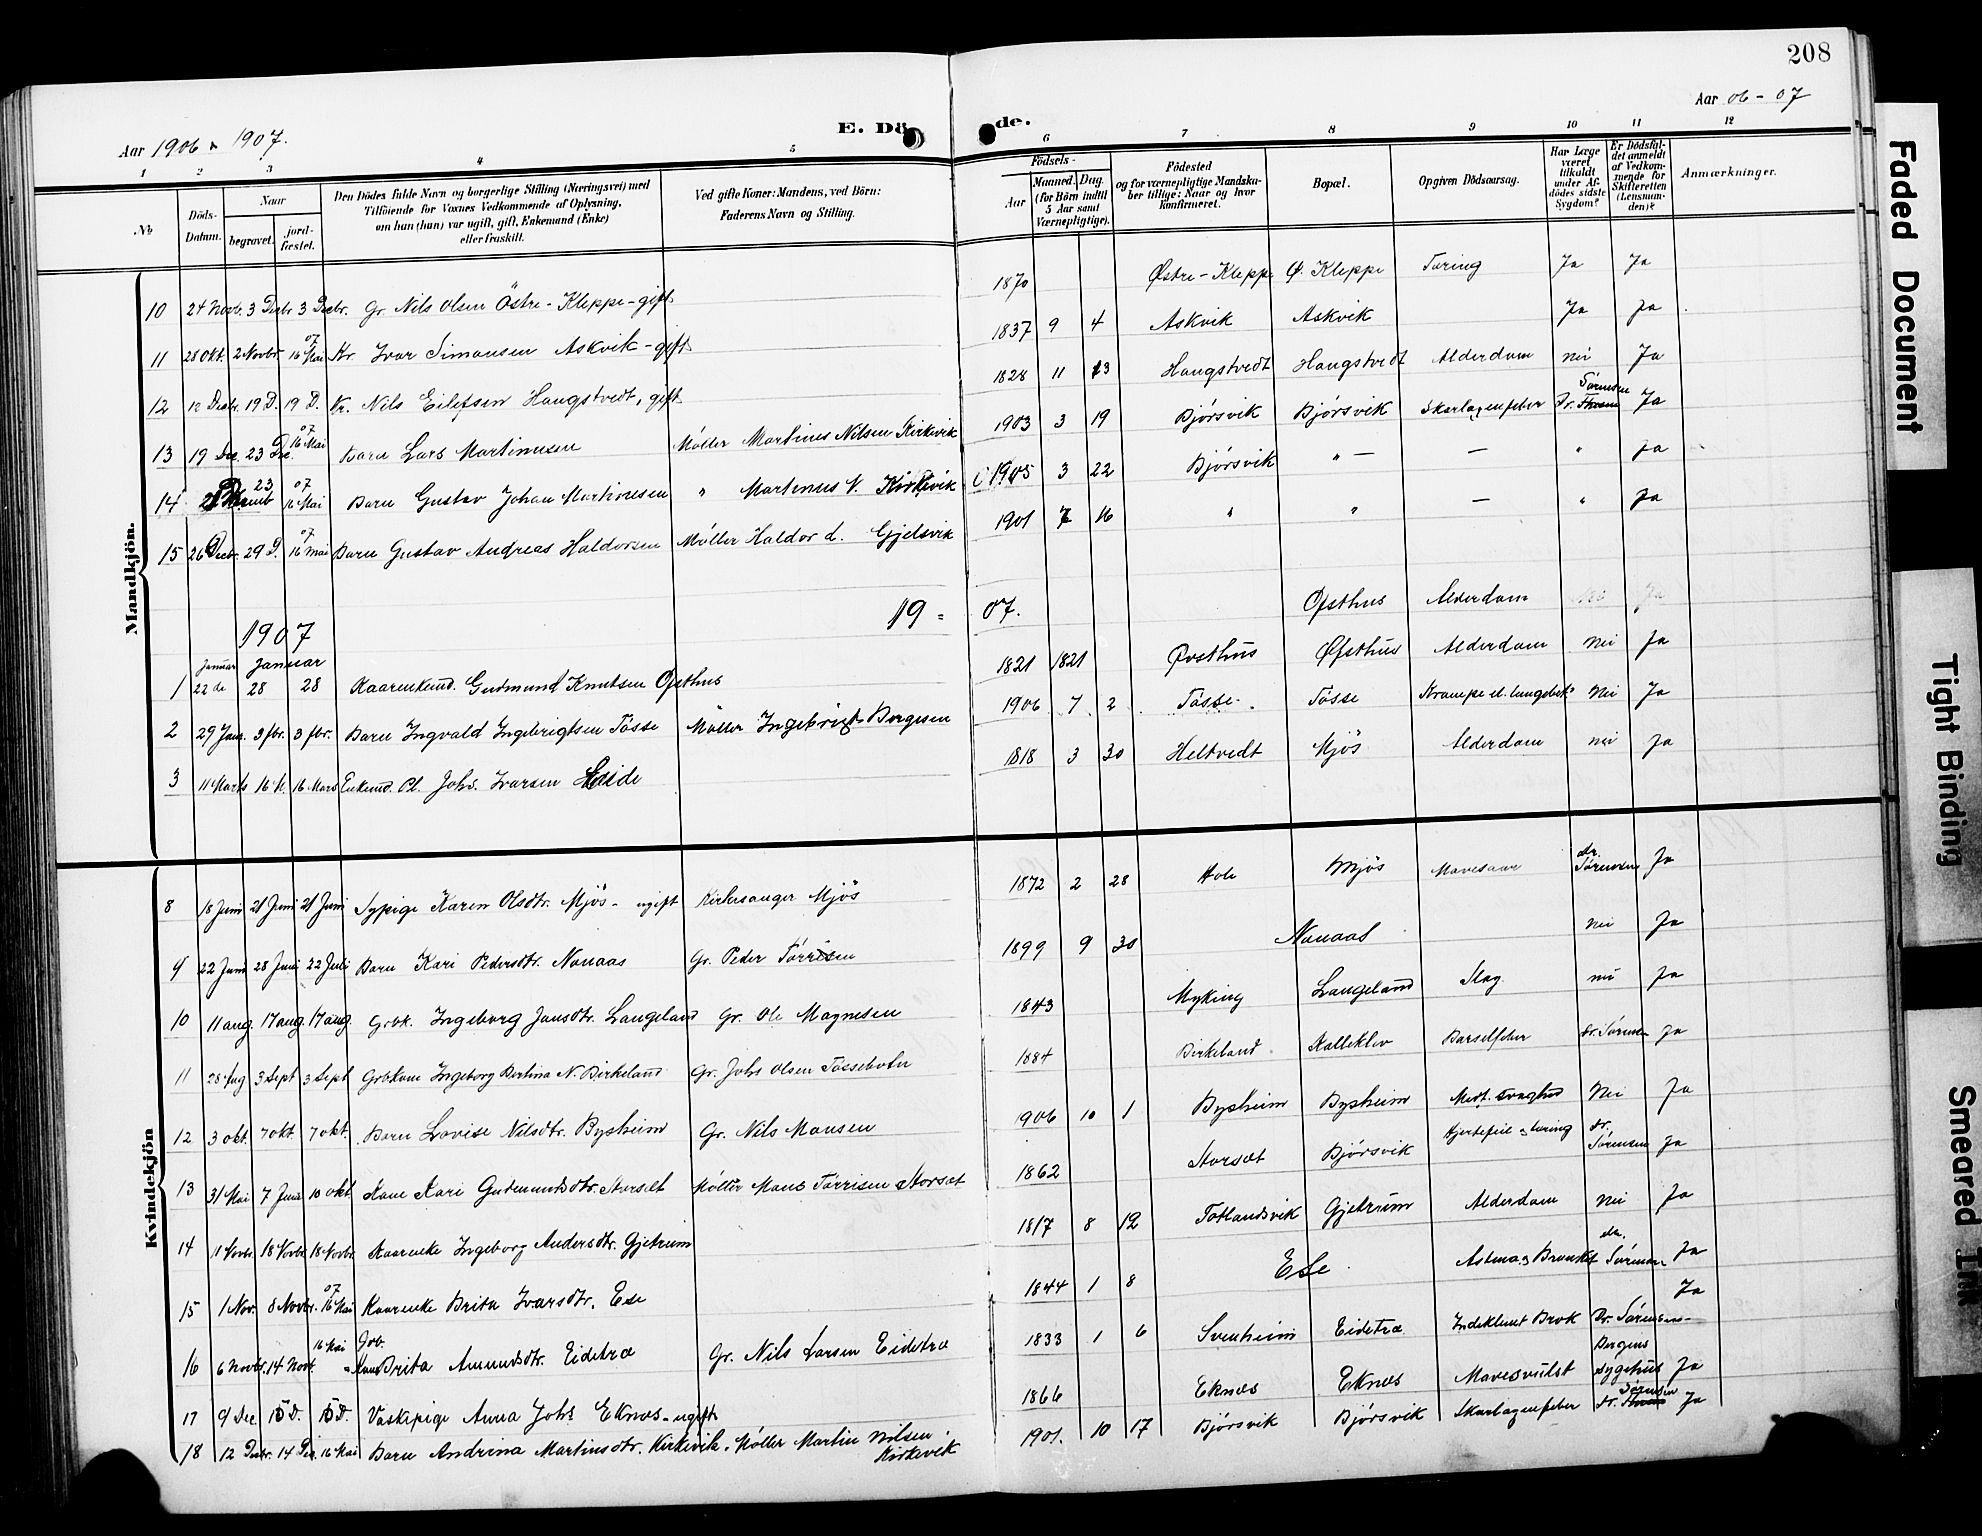 208
Aar 1906 & 1907.
E. Dö
de.
Aar 06 - 07
1 2 3 4 5 6 7 8 9 10 11 12
No
Döds-Datum.
Naar
begravet.
jord-fæstet.
Den Dödes fulde Navn og borgerlige Stilling (Næringsvei) med
Tilföiende for Voxnes Vedkommende af Oplysning,
om han (hun) var ugift, gift, Enkemand (Enke)
eller fraskilt.
Ved gifte Koner: Mandens, ved Börn:
Faderens Navn og Stilling.
Födsels-
Aar
Maaned. Dag.
(for Börn indtil
5 Aar samt
Værnepligtige).
Födested
og for værnepligtige Mandska-
ber tillige: Naar og hvor
konfirmeret.
Bopæl.
Opgiven Dödsaarsag.
Har Læge
været
tilkaldt
under Af-
dödes sidste
Sygdom?
Er Dödsfal-
det anmeldt
af Vedkom-
mende for
Skifteretten
(Lensman-
den)?
Anmærkninger.
Mandkjön.
10 24 Novb. 3 Decbr 3 Decbr. Gr. Nils Olsen Östre-Kleppe-gift 1870 Østre-Kleppe Ø. Kleppe Tæring Ja Ja
11 28 Okt. 2 Novbr. 16 Mai 07 Kr. Ivar Simonsen Askvik-gift 1837 9 4 Askvik Askvik Ja Ja
12 12 Decbr. 19 D. 19 D. Kr. Nils Eilefsen Haugstvedt, gift 1828 11 13 Haugstvedt Haugstvedt Alderdom Nei Ja
13 19 Dec. 23 Dec. 16 Mai 07 Barn Lars Martinusen Møller Martinus Nilsen Kirkevik 1903 3 19 Bjórsvik Bjórsvik Skarlagenfeber Dr. Sørensen Ja
14 23 16 Mai 07 Barn Gustav Johan Martinusen " Martinus N. Kirkevik 1905 3 22 Bjórsvik " — — " Ja
15 26 Decbr. 29 D. 16 Mai 07 Barn Gustav Andreas Haldorsen Møller Haldor d. Gjelsvik 1901 7 16 " " — " Ja
19 = 07.
Ofsthus Alderdom Nei Ja
1907
Januar Januar
1 22de 28 28 Kaarenkend. Gudmund Knutsen Ofsthus 1821 1821 Øvsthus Øfsthus Alderdom Nei Ja
2 29 Jan. 3 fbr. 3 fbr. Barn Ingvald Ingebrigtsen Tösse Møller Ingebrigt Borgesen 1906 7 2 Tösse Tösse Krampe el. lungebet. Nei Ja
3 11 Marts 16 M. 16 Mars Enkemd. Pl. Johs. Ivarsen Heide 1818 3 30 Heltvedt Mjös Alderdom Nei Ja
Kvindekjön
8 18 Juni 21 Juni 21 Juni Sypige Karen Olsdtr. Mjös - ugift Kirkesanger Mjös 1872 2 28 Hole Mjös Mavesaar dr. Sørensen Ja
9 22 Juni 28 Juni 22 Juli Barn Kari Pedersdtr. Nonaas Gr. Peder Tørrisen 1899 9 30 Nonaas Nei Ja
10 11 aug. 17 aug. 17 aug. Grbk. Ingeborg Jansdtr. Langeland Gr. Ole Magnesen 1843 Myking Langeland Slag Nei Ja
11 28 Aug 3 Sept 3 Sept Grbkone Ingeborg Bertina N. Birkeland Gr. Johs Olsen Tössebotn 1884 Birkeland Kalleklev Barselfeber dr. Sørensen Ja
12 3 okt. 7 okt. 7 okt. Barn Lovise Nilsdtr. Bysheim Gr. Nils Monsen 1906 10 1 Bysheim Bysheim Medf. svaghed Nei Ja
13 31 Mai 7 Juni 10 okt. Kone Kari Gudmundsdtr. Storset Møller Mons Tørrisen Storset 1862 Storset Bjórsvik Hjertefeil og tæring dr. Sørensen Ja
14 11 Novbr. 18 Novbr 18 Novbr. Kaarenke Ingeborg Andersdtr. Gjetrum 1817 8 12 Totlandsvik Gjetrum Alderdom Nei Ja
15 1 Nov. 8 Novbr. 16 Mai 07 Kaarenke Brita Ivarsdtr. Ese 1844 1 8 Ese Astma og Bronkit dr. Sørensen Ja
16 6 Novbr. 14 Novb. 16 Mai Gbr.-Kone Brita Amundsdtr. Eidetræ Gr. Nils Larsen Eidetræ 1833 1 6 Svenheim Eidetræ Indeklemt Brok Dr. Sørensen Ja
17 9 Dec 15 D. 15 D. Vaskepige Anna Johs Eknæs-ugift 1866 Eknæs Eknæs Mavesvulst Bergens sygehus Ja
18 12 Decbr. 14 Dec. 16 Mai Barn Andrina Martinsdtr. Kirkevik. Møller Martin Nilsen Kirkevik 1901. 10 17 Bjórsvik Bjórsvik Skarlagenfeber dr. Sørensen Ja
Faded Document
Tight Binding
Smeared Ink